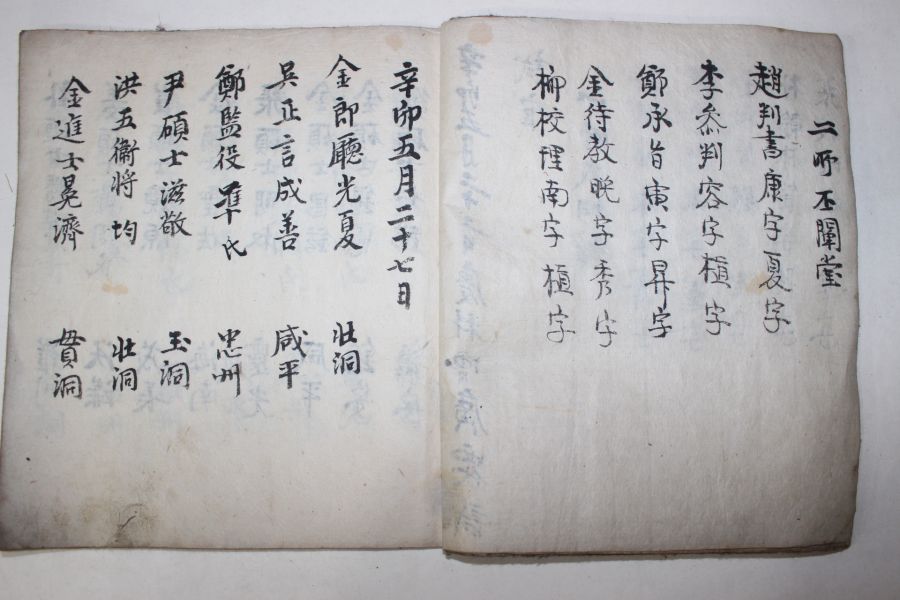 二所丕闡堂
趙判書庚字夏字
李叅判容字植字
鄭承旨寅字昇字
金待敎晩字秀字
柳校理南字植字
辛卯五月二十七日
金郎廳光夏 壯洞
吳正言成善 咸平
鄭監役準民 忠州
尹碩士滋敬 玉洞
洪五衛將均 壯洞
金進士晃濟 貫洞